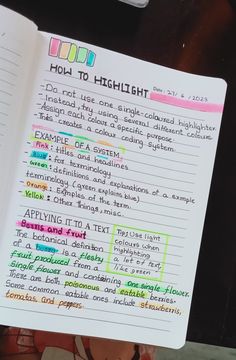 HOW TO HIGHLIGHT
Date: 27/6/2023
- Do not use one single-coloured highlighter.
Instead, try using several different colours.
- Assign each colour a specific purpose.
This creates a colour coding system
EXAMPLE OF A SYSTEM
- Pink: titles and headlines
- Blue: for terminology
- Green: definitions and explanations of a example
terminology (green explains blue)
- Orange: Examples of the term
- Yellow: Other things, misc.
APPLYING IT TO A TEXT
Berries and fruit
The botanical definition
of a berry is a fleshy
fruit produced from a
single flower and containing one single flower.
There are both poisonous and eatable berries.
Some common eatable ones include strawberries,
tomatoes and peppers.
Tip: Use light
colours when
highlighting
a lot of text
like green